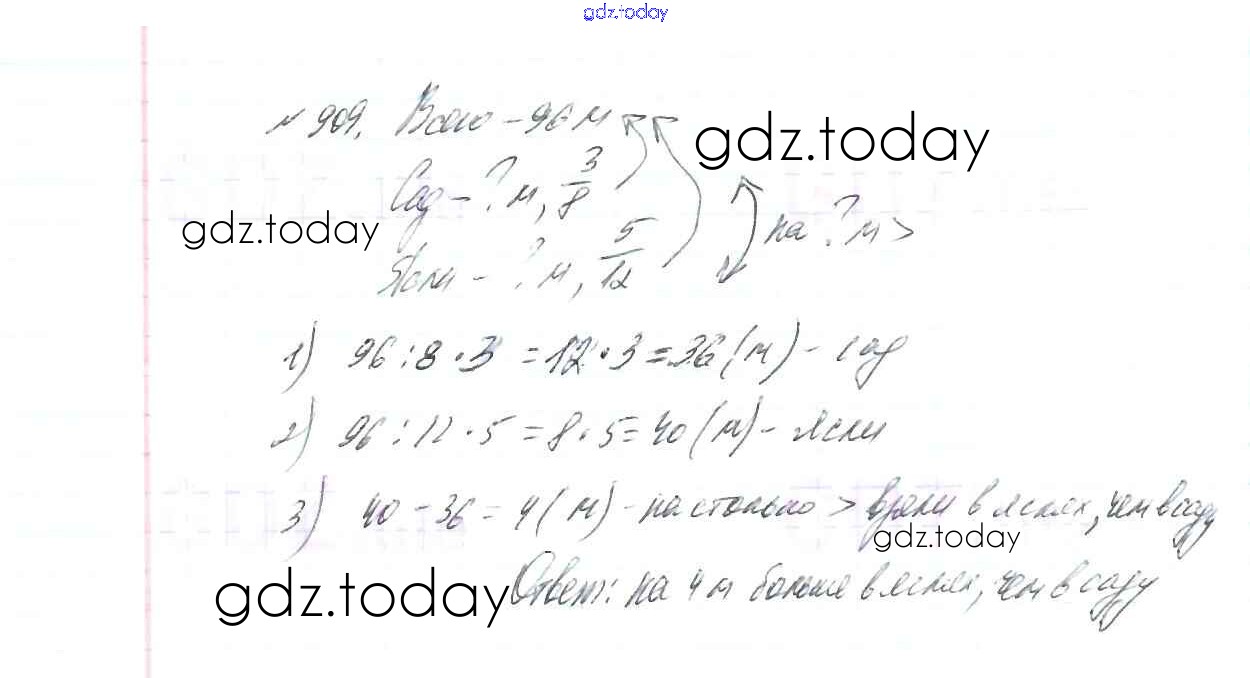 gdz.today
№ 909. Всего - 96 м
gdz.today
Сад - ? м, 3/8
gdz.today
на ? м >
Ясли - ? м, 5/12
1) 96 : 8 · 3 = 12 · 3 = 36 (м) - сад
2) 96 : 12 · 5 = 8 · 5 = 40 (м) - ясли
3) 40 - 36 = 4 (м) - на столько > взяли в яслях, чем в саду
gdz.today
gdz.today
Ответ: на 4 м больше в яслях, чем в саду